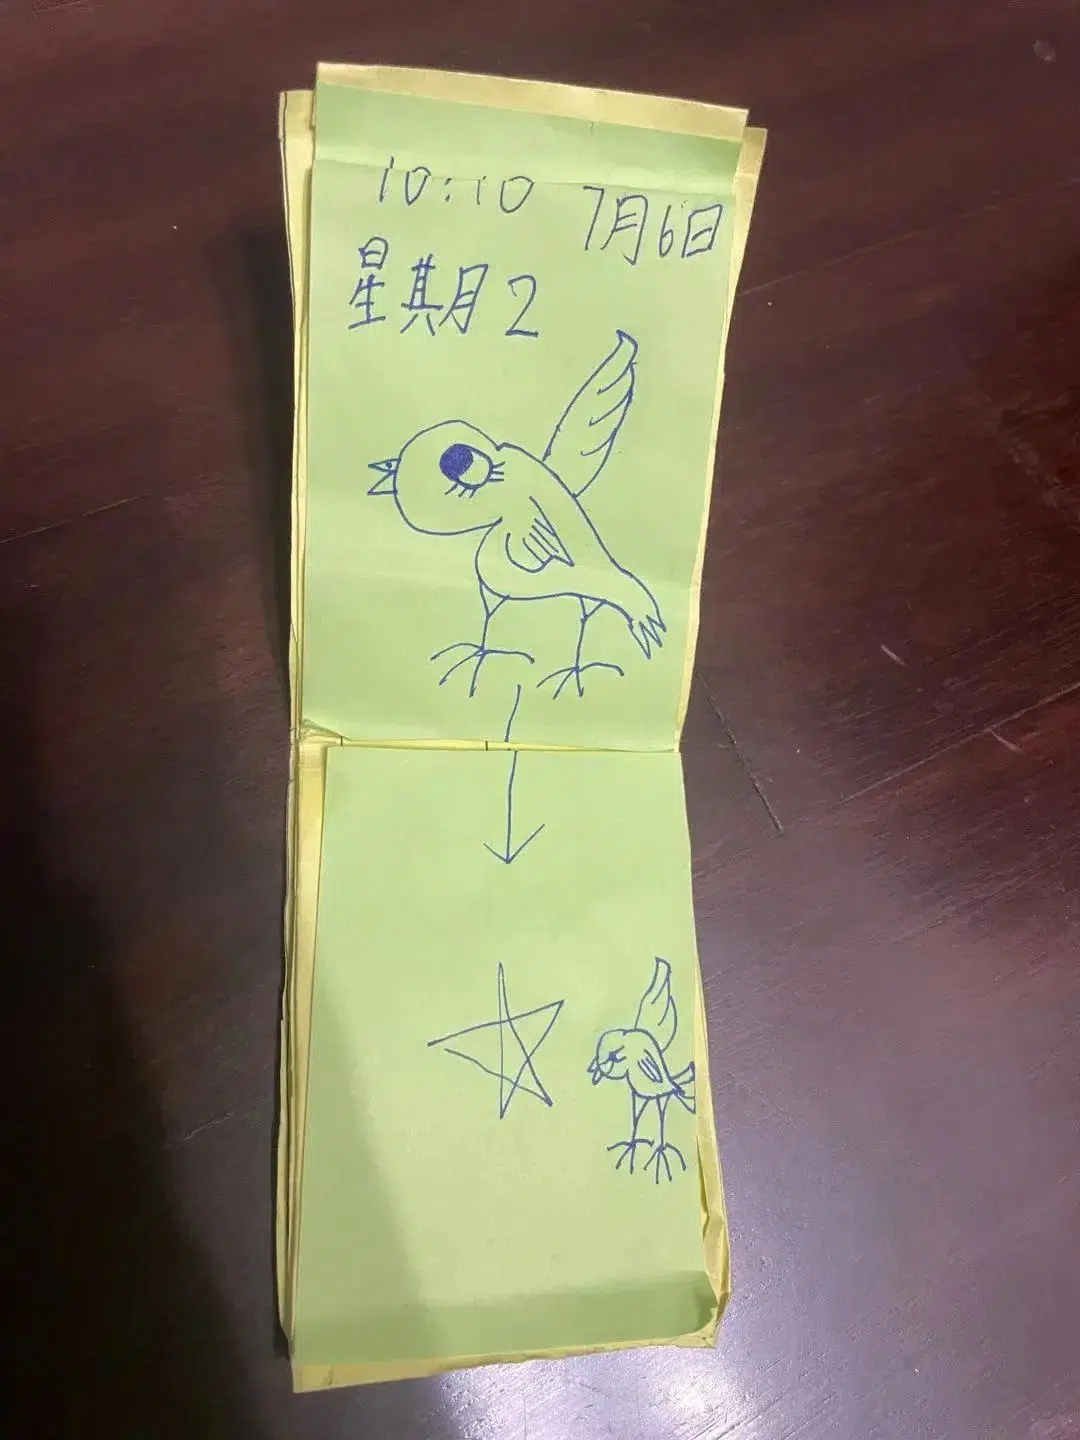 10:10 7月6日
星期2